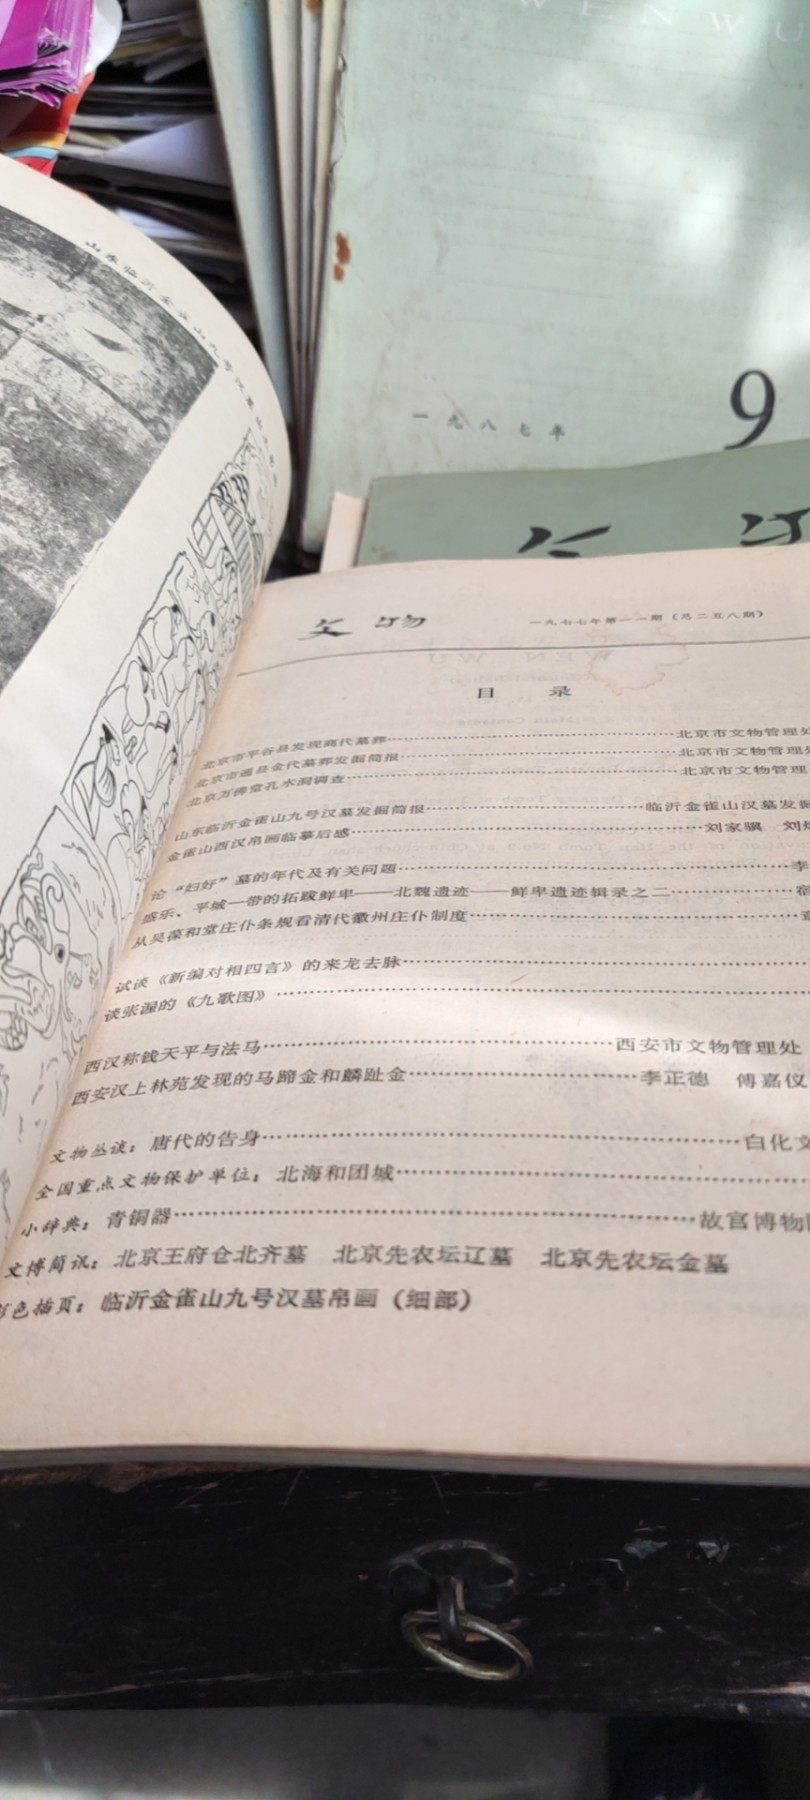 WENWU
一九八七年
9
文物
山东临沂金雀山九号汉墓
文物 一九七七年第一一期（总二五八期）
目录
北京市平谷县发现商代墓葬……北京市文物管理处
北京市通县金代墓葬发掘简报……北京市文物管理处
北京万佛堂孔水洞调查……北京市文物管理
山东临沂金雀山九号汉墓发掘简报……临沂金雀山汉墓发掘
金雀山西汉帛画临摹后感……刘家骥 刘
论“妇好”墓的年代及有关问题……李
盛乐、平城一带的拓跋鲜卑——北魏遗迹——鲜卑遗迹辑录之二……宿
从吴葆和堂庄仆条规看清代徽州庄仆制度……章
试谈《新编对相四言》的来龙去脉……
谈张渥的《九歌图》……
西汉称钱天平与法马……西安市文物管理处
西安汉上林苑发现的马蹄金和麟趾金……李正德 傅嘉仪
文物丛谈：唐代的告身……白化文
全国重点文物保护单位：北海和团城……
小辞典：青铜器……故宫博物
文博简讯：北京王府仓北齐墓 北京先农坛辽墓 北京先农坛金墓
彩色插页：临沂金雀山九号汉墓帛画（细部）